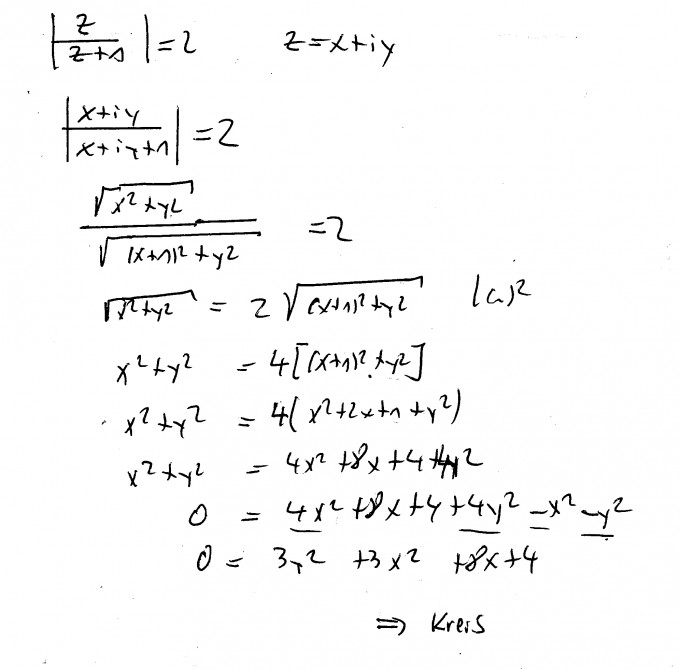 |z/(z+1)| = 2    z = x+iy
|(x+iy)/(x+iy+1)| = 2
√(x²+y²) / √((x+1)²+y²) = 2
√(x²+y²) = 2 √((x+1)²+y²)    |( )²
x²+y² = 4[(x+1)²+y²]
x²+y² = 4(x²+2x+1+y²)
x²+y² = 4x²+8x+4+4y²
0 = 4x²+8x+4+4y²-x²-y²
0 = 3y²+3x²+8x+4
⇒ Kreis